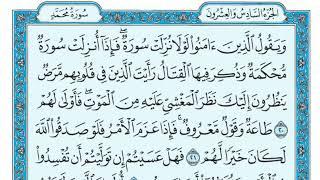 الجزء السادس والعشرون سورة محمد
وَيَقُولُ الَّذِينَ ءَامَنُوا لَوْلَا نُزِّلَتْ سُورَةٌ فَإِذَا أُنزِلَتْ سُورَةٌ
مُّحْكَمَةٌ وَذُكِرَ فِيهَا الْقِتَالُ رَأَيْتَ الَّذِينَ فِي قُلُوبِهِم مَّرَضٌ
يَنظُرُونَ إِلَيْكَ نَظَرَ الْمَغْشِيِّ عَلَيْهِ مِنَ الْمَوْتِ فَأَوْلَىٰ لَهُمْ ٢٠
طَاعَةٌ وَقَوْلٌ مَّعْرُوفٌ فَإِذَا عَزَمَ الْأَمْرُ فَلَوْ صَدَقُوا اللَّهَ
لَكَانَ خَيْرًا لَّهُمْ ٢١ فَهَلْ عَسَيْتُمْ إِن تَوَلَّيْتُمْ أَن تُفْسِدُوا